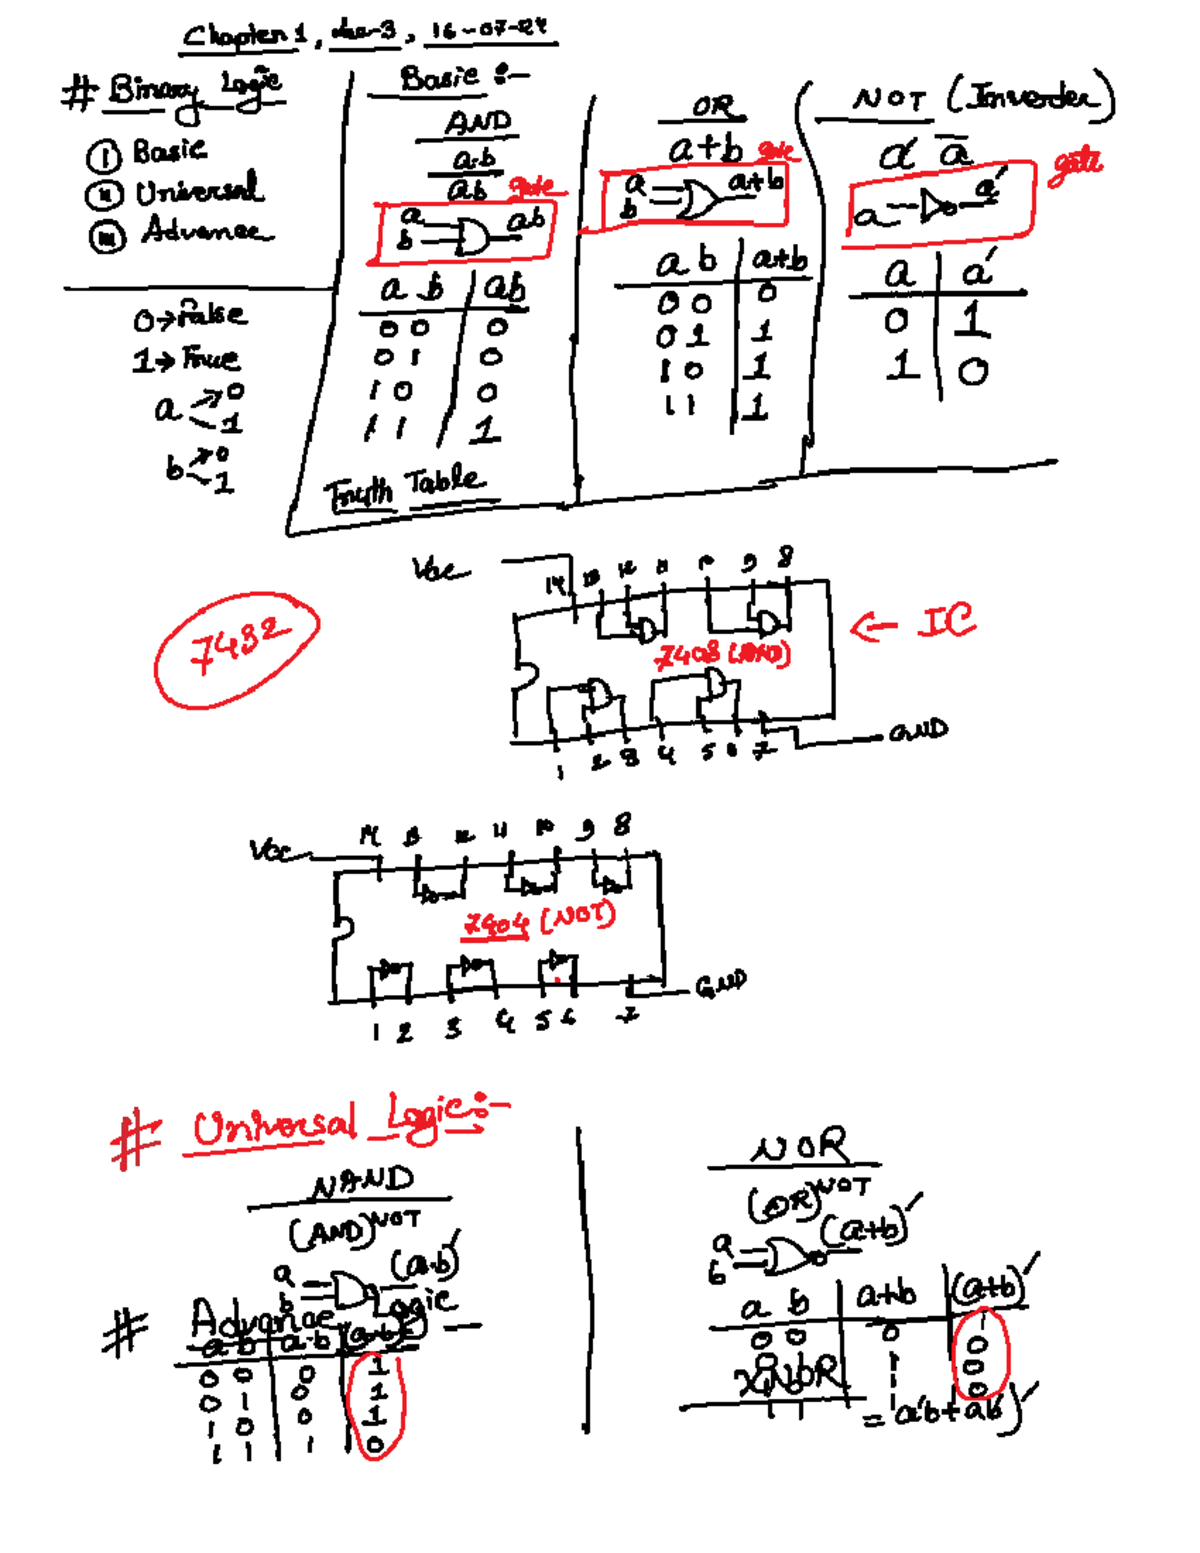 Chapter 1, dec-3, 16-07-24
# Binary Logic
① Basic
② Universal
③ Advance
0→False
1→True
a →0
→1
b →0
→1
Basic :-
AND
a.b
ab
gate
a
b
ab
a b | ab
0 0 | 0
0 1 | 0
1 0 | 0
1 1 | 1
Truth Table
OR
a+b
gate
a
b
a+b
a b | a+b
0 0 | 0
0 1 | 1
1 0 | 1
1 1 | 1
NOT (Inverder)
a' a̅
gate
a
a'
a | a'
0 | 1
1 | 0
7432
Vcc
14 13 12 11 10 9 8
7408 (AND)
← IC
1 2 3 4 5 6 7
GND
Vcc
14 13 12 11 10 9 8
7404 (NOT)
1 2 3 4 5 6 7
GND
# Universal Logic:-
NAND
(AND)NOT
a
b
(a.b)'
# Advance Logic :-
a b | a.b | (a.b)'
0 0 | 0 | 1
0 1 | 0 | 1
1 0 | 0 | 1
1 1 | 1 | 0
NOR
(OR)NOT
a
b
(a+b)'
a b | a+b | (a+b)'
0 0 | 0 | 1
1 | 0
1 | 0
1 1 | 1 | 0
XNOR
= a'b+ab')'